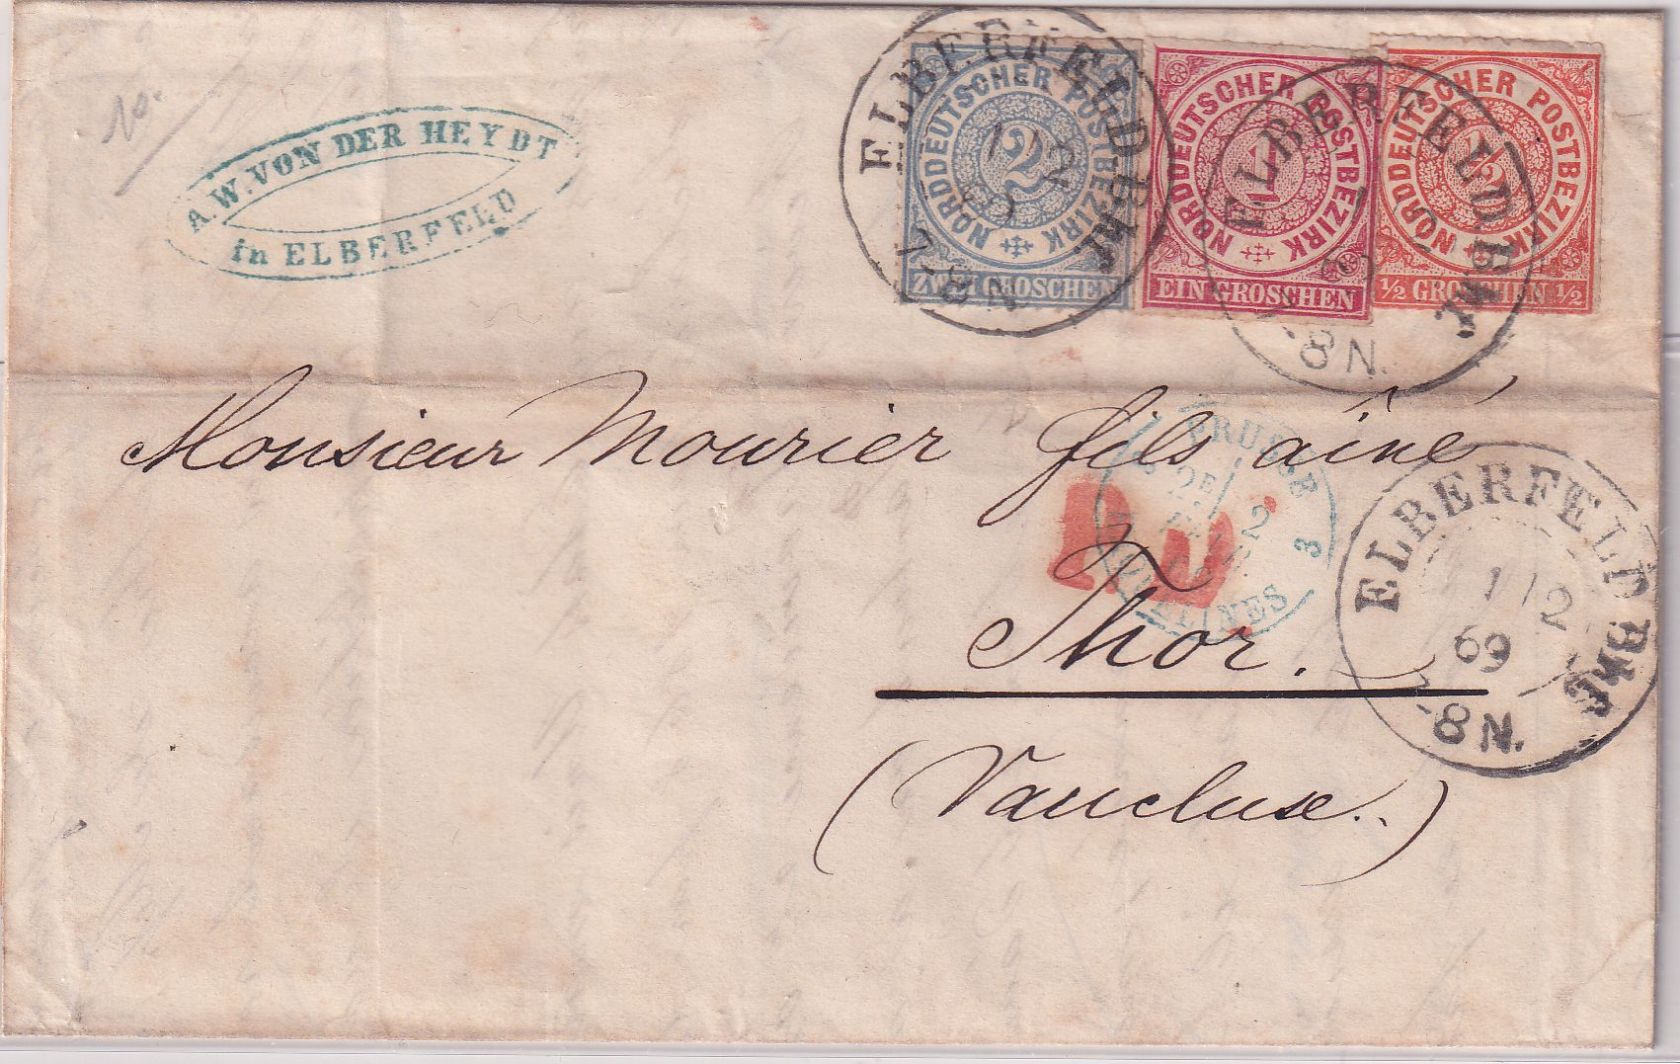 10.
A. W. VON DER HEYDT
in ELBERFELD
NORDDEUTSCHER POSTBEZIRK
2
ZWEI GROSCHEN
NORDDEUTSCHER POSTBEZIRK
1
EIN GROSCHEN
NORDDEUTSCHER POSTBEZIRK
1/2
1/2 GROSCHEN 1/2
ELBERFELD Bhf.
1 12
69
7-8 N.
ELBERFELD. Bhf.
1
69
7-8 N.
Monsieur Mourier fils aîné
PRUSSE
2E 2
3
P.D.
Thor.
ELBERFELD Bhf.
1 12
69
7-8 N.
(Vaucluse.)